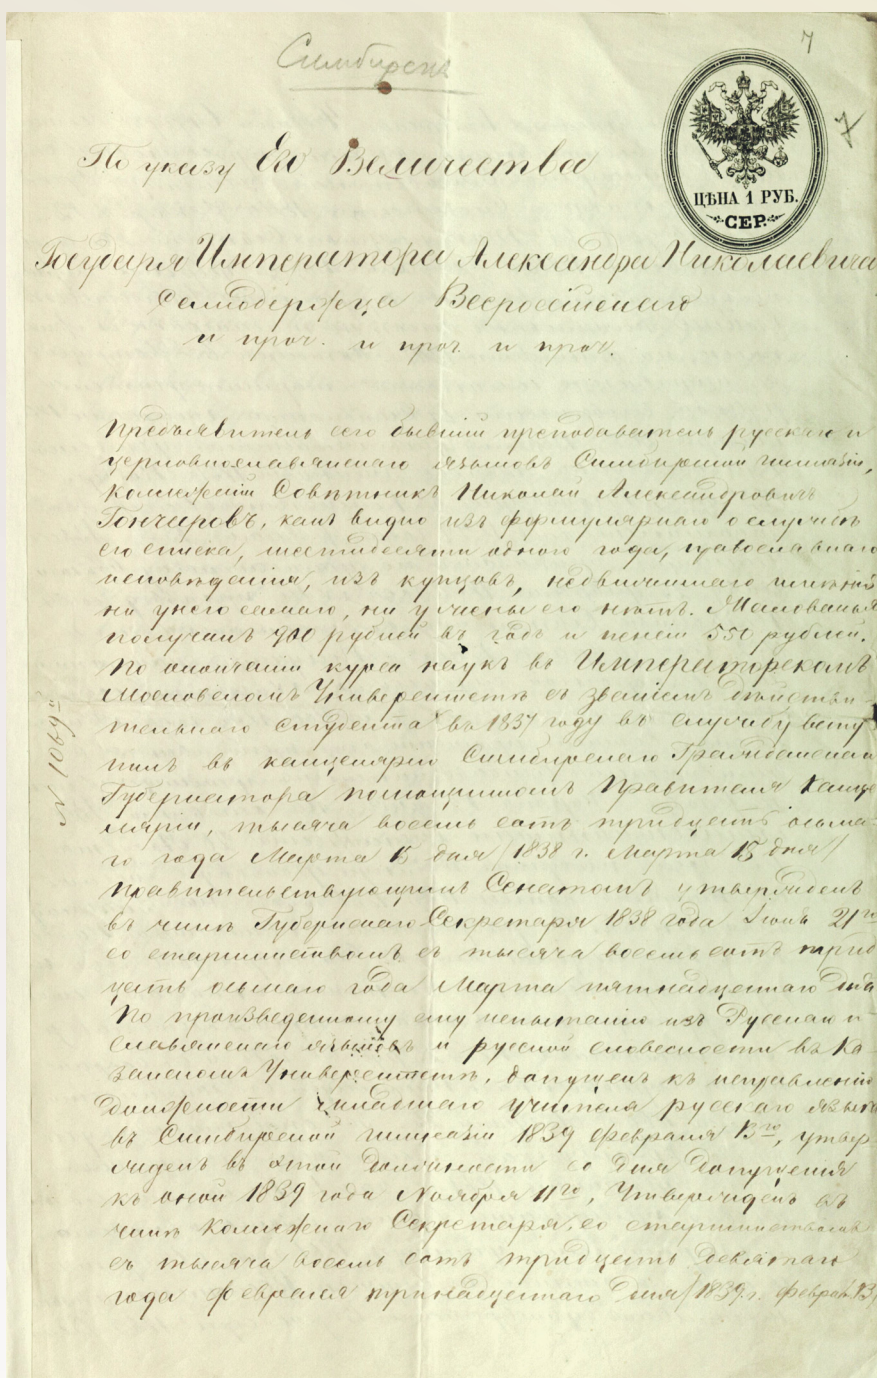 Симбирскъ
7
7
ЦѢНА 1 РУБ.
СЕР.
По указу Его Величества
Государя Императора Александра Николаевича
Самодержца Всероссійскаго
и проч. и проч. и проч.
Предъявитель сего бывшій преподаватель русскаго и
церковнославянскаго языковъ Симбирской гимназіи,
Коллежскій Совѣтникъ Николай Александровичъ
Гончаровъ, какъ видно изъ формулярнаго о службѣ
его списка, шестидесяти одного года, православнаго
исповѣданія, изъ купцовъ, недвижимаго имѣнія
ни у него самаго, ни у жены его нѣтъ. Жалованья
получалъ 900 рублей въ годъ и пенсіи 550 рублей.
По окончаніи курса наукъ въ Императорскомъ
Московскомъ Университетѣ съ званіемъ дѣйстви-
тельнаго студента въ 1837 году въ службу всту
пилъ въ канцелярію Симбирскаго Гражданскаго
Губернатора помощникомъ Правителя Канце
ляріи, тысяча восемь сотъ тридцать осьма-
го года Марта 15 дня /1838 г. Марта 15 дня/
Правительствующимъ Сенатомъ утвержденъ
въ чинѣ Губернскаго Секретаря 1838 года Іюнь 21го
со старшинствомъ съ тысяча восемь сотъ трид
цать осьмаго года Марта пятнадцатаго дня
По произведенному ему испытанію изъ Русскаго и
славянскаго языковъ и русской словесности въ Ка-
занскомъ Университетѣ, допущенъ къ исправленію
должности младшаго учителя русскаго языка
въ Симбирской гимназіи 1839 февраля 13го, утвер
жденъ въ этой должности со дня допущенія
къ оной 1839 года Ноября 11го, Утвержденъ въ
чинѣ Коллежскаго Секретаря, со старшинствомъ
съ тысяча восемь сотъ тридцать девятаго
года февраля тринадцатаго дня /1839 г. февраля 13